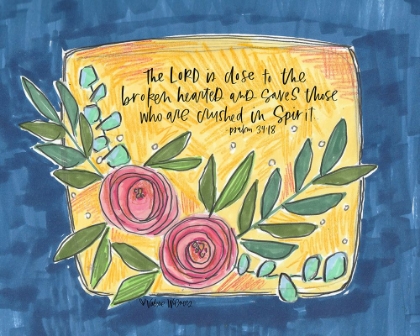 The LORD is close to the
broken hearted and saves those
who are crushed in Spirit
-psalm 34:18